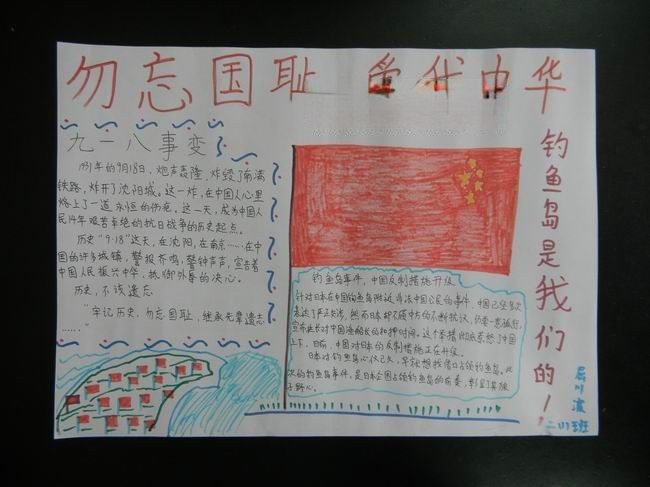 勿忘国耻 代中华
九一八事变
1931年的9月18日，炮声轰隆，炸毁了南满
铁路，炸开了沈阳城。这一炸，在中国人心里
烙上了一道永恒的伤疤。这一天，成为中国人
民14年艰苦卓绝的抗日战争的历史起点。
历史"9·18"这天，在沈阳，在南京……在中
国的许多城镇，警报齐鸣，警钟声声，宣告着
中国人民振兴中华，抵御外辱的决心。
历史，不该遗忘
"牢记历史，勿忘国耻，继承先辈遗志
……"
钓鱼岛事件，中国反制措施升级
针对日本在中国钓鱼岛附近非法中国公民的事件，中国已经多次
表达了严正交涉，然而日本却不顾中方的不断抗议，仍要一意孤行，
宣布延长对中国渔船船长的扣押时间。这个举措彻底惹怒了中国
上下，目前，中国对日本的反制措施正在升级。
日本对钓鱼岛心仪已久，早就想找借口占领钓鱼岛。此
次的钓鱼岛事件，是日本企图占领钓鱼岛的前奏，彰显了其狼
子野心。
钓鱼岛是我们的！
二(1)班